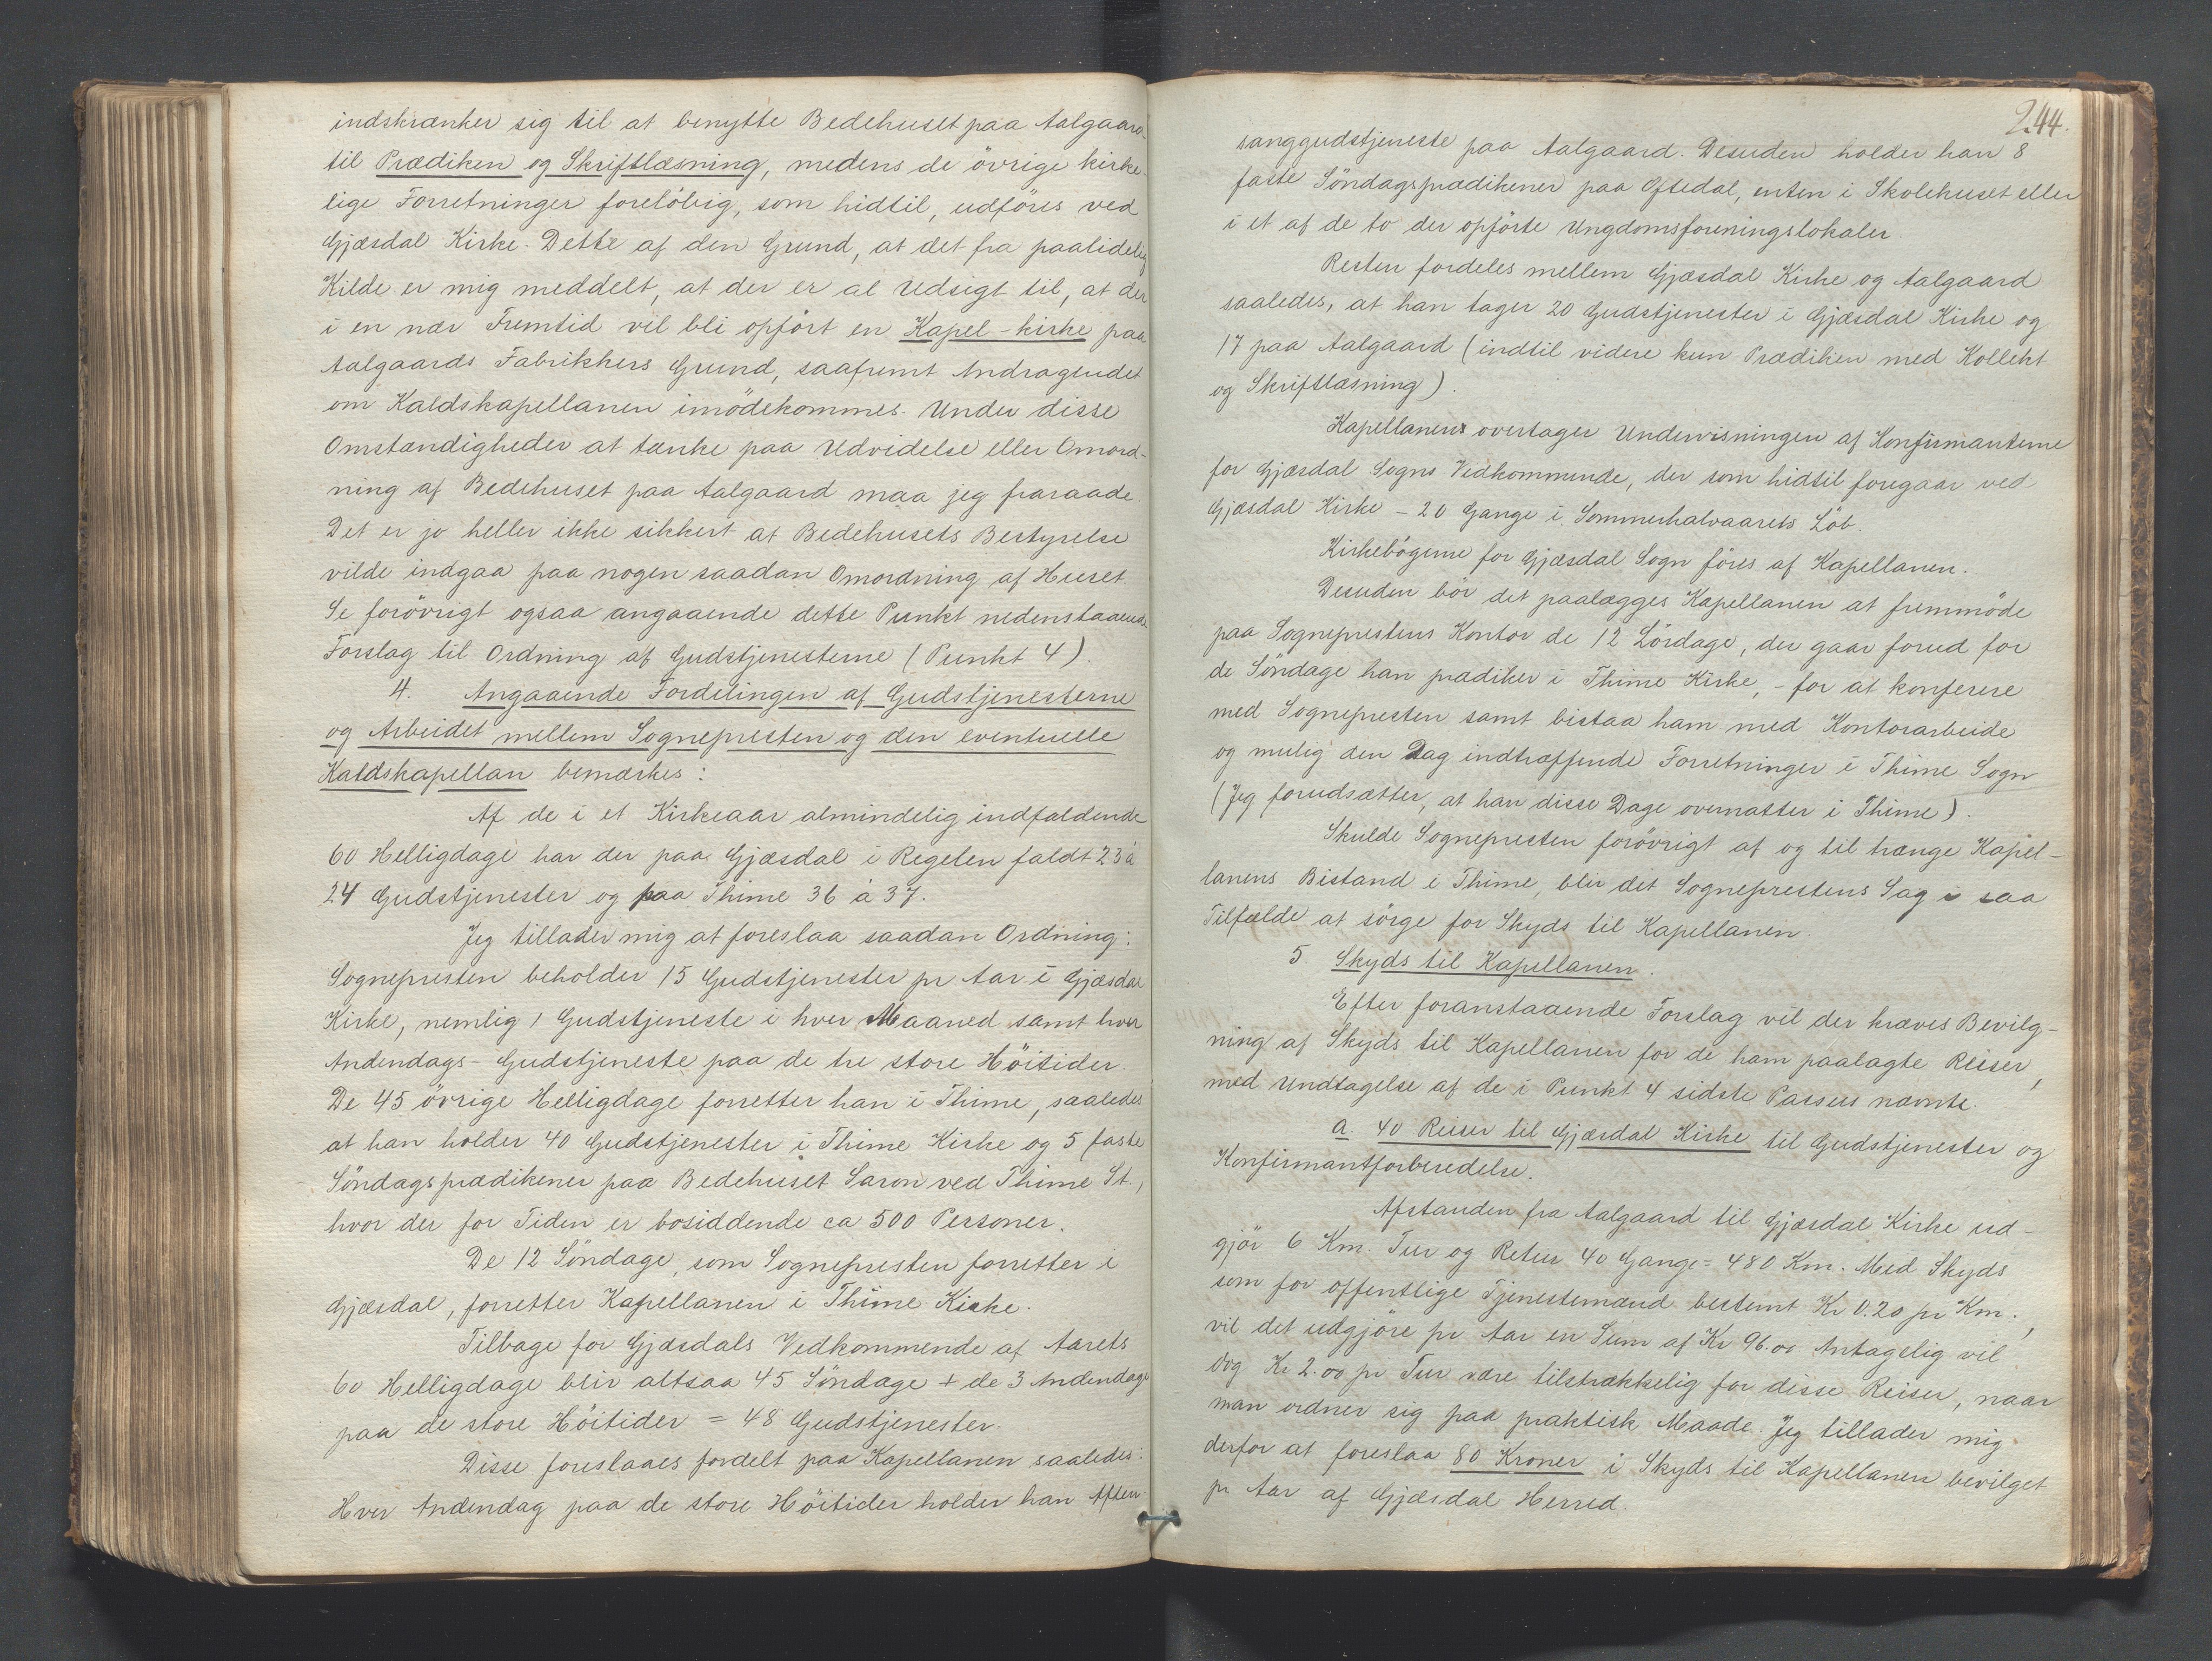 indskrænker sig til at benytte Bedehuset paa Aalgaard
til Prædiken og Skriftlæsning, medens de övrige kirke-
lige Forretninger foreløbig, som hidtil, udföres ved
Gjæsdal Kirke. Dette af den Grund, at det fra paalidelig
Kilde er mig meddelt, at der er al Udsigt til, at der
i en nær Fremtid vil bli opfört en Kapel-kirke paa
Aalgaards Fabrikkers Grund, saafremt Andragendet
om Kaldskapellanen imödekommes. Under disse
Omstændigheder at tænke paa Udvidelse eller Omord-
ning af Bedehuset paa Aalgaard maa jeg fraraade.
Det er jo heller ikke sikkert at Bedehusets Bestyrelse
vilde indgaa paa nogen saadan Omordning af Huset.
Se forövrigt ogsaa angaaende dette Punkt nedenstaaende
Forslag til Ordning af Gudstjenesterne (Punkt 4).
4. Angaaende Fordelingen af Gudstjenesterne
og Arbeidet mellem Sognepresten og den eventuelle
Kaldskapellan bemærkes:
Af de i et Kirkeaar almindelig indfaldende
60 Helligdage har der paa Gjæsdal i Regelen faldt 23 à
24 Gudstjenester og paa Thime 36 à 37.
Jeg tillader mig at foreslaa saadan Ordning:
Sognepresten beholder 15 Gudstjenester pr Aar i Gjæsdal
Kirke, nemlig 1 Gudstjeneste i hver Maaned samt hver
Andendags-Gudstjeneste paa de tre store Höitider.
De 45 övrige Helligdage forretter han i Thime, saaledes
at han holder 40 Gudstjenester i Thime Kirke og 5 faste
Söndagsprædikener paa Bedehuset Saron ved Thime St.,
hvor der for Tiden er bosiddende ca 500 Personer.
De 12 Söndage, som Sognepresten forretter i
Gjæsdal, forretter Kapellanen i Thime Kirke.
Tilbage for Gjæsdals Vedkommende af Aarets
60 Helligdage blir altsaa 45 Söndage + de 3 Andendage
paa de store Höitider = 48 Gudstjenester.
Disse foreslaaes fordelt paa Kapellanen saaledes:
Hver Andendag paa de store Höitider holder han Aften-
244.
sanggudstjeneste paa Aalgaard. Desuden holder han 8
faste Söndagsprædikener paa Oftedal, enten i Skolehuset eller
i et af de to der opförte Ungdomsforeningslokaler.
Resten fordeles mellem Gjæsdal Kirke og Aalgaard
saaledes, at han tager 20 Gudstjenester i Gjæsdal Kirke og
17 paa Aalgaard (indtil videre kun Prædiken med Kollekt
og Skriftlæsning).
Kapellanen overtager Undervisningen af Konfirmanterne
for Gjæsdal Sogns Vedkommende, der som hidtil foregaar ved
Gjæsdal Kirke - 20 Gange i Sommerhalvaarets Löb.
Kirkebögerne for Gjæsdal Sogn föres af Kapellanen.
Desuden bör det paalægges Kapellanen at fremmöde
paa Sogneprestens Kontor de 12 Lördage, der gaar forud for
de Söndage han prædiker i Thime Kirke, - for at konferere
med Sognepresten samt bistaa ham med Kontorarbeide
og mulig den Dag indtræffende Forretninger i Thime Sogn
(Jeg forudsætter, at han disse Dage overnatter i Thime).
Skulde Sognepresten forövrigt af og til trænge Kapel-
lanens Bistand i Thime, blir det Sogneprestens Sag i saa
Tilfælde at sörge for Skyds til Kapellanen.
5. Skyds til Kapellanen.
Efter foranstaaende Forslag vil der kræves Bevilg-
ning af Skyds til Kapellanen for de ham paalagte Reiser,
med Undtagelse af de i Punkt 4 sidste Passus nævnte.
a. 40 Reiser til Gjæsdal Kirke til Gudstjenester og
Konfirmantforberedelse.
Afstanden fra Aalgaard til Gjæsdal Kirke ud-
gjör 6 Km. Tur og Retur 40 Gange = 480 Km. Med Skyds
som for offentlige Tjenestemænd bestemt Kr 0.20 pr Km.,
vil det udgjöre pr Aar en Sum af Kr 96.00 Antagelig vil
dog Kr 2.00 pr Tur være tilstrækkelig for disse Reiser, naar
man ordner sig paa praktisk Maade. Jeg tillader mig
derfor at foreslaa 80 Kroner i Skyds til Kapellanen bevilget
pr Aar af Gjæsdal Herred.